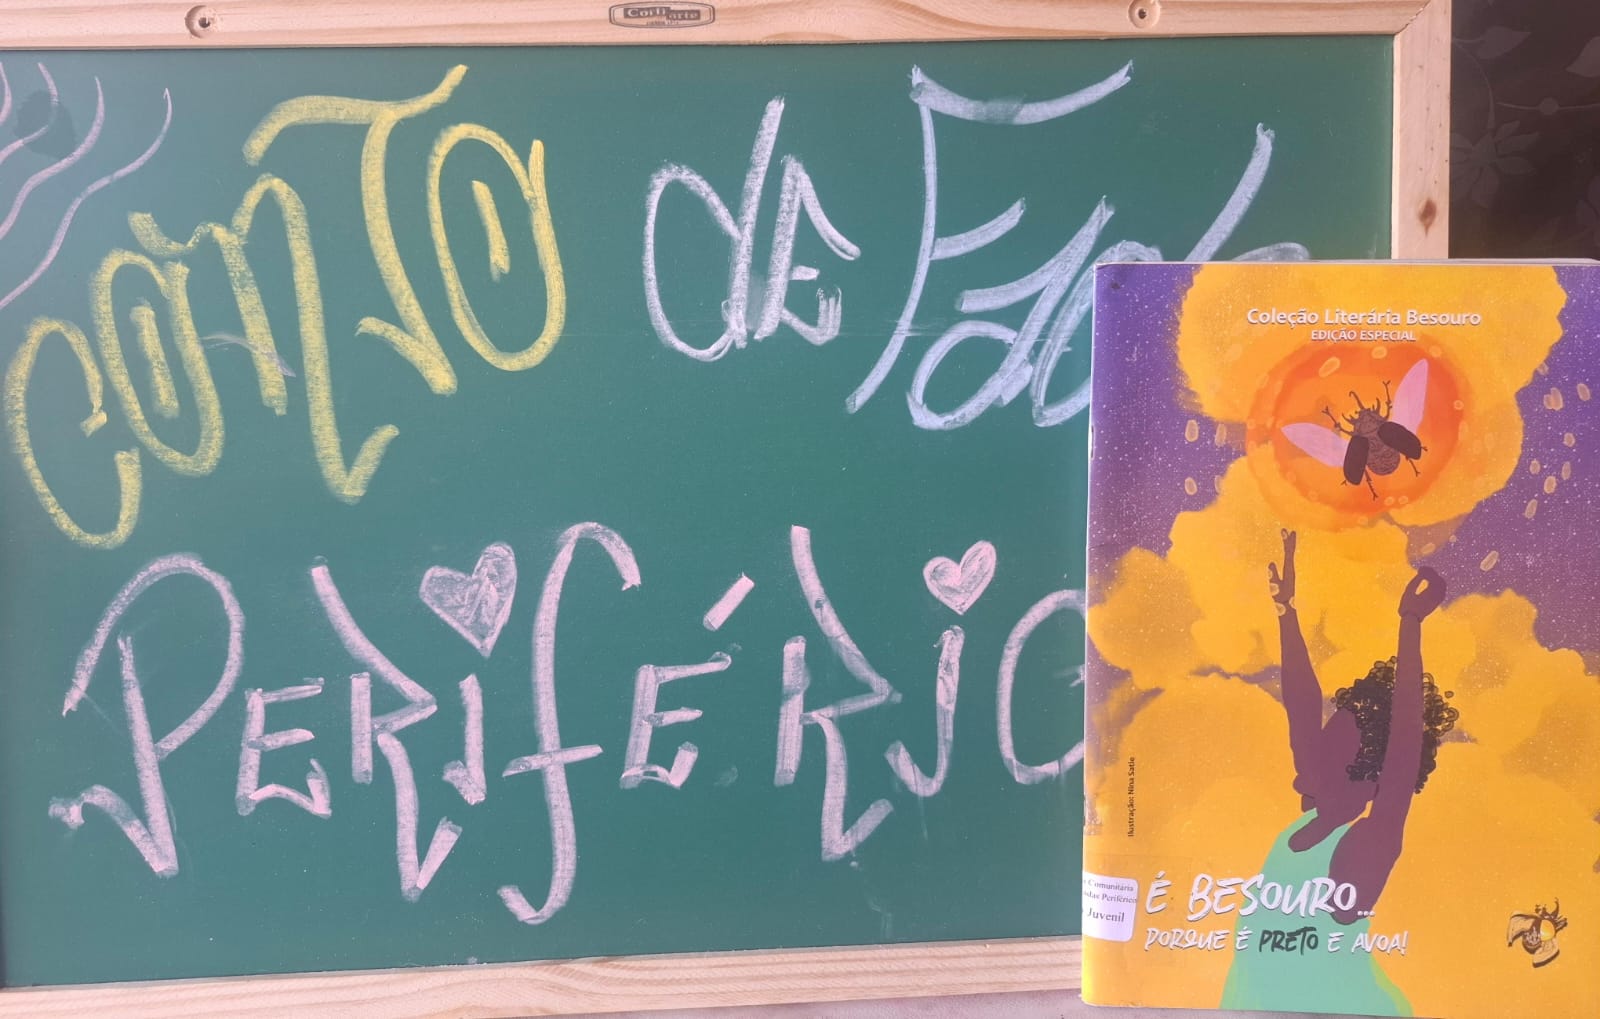 Corti arte
CONTO de Fad
PERIFÉRIC
Coleção Literária Besouro
EDIÇÃO ESPECIAL
Ilustração: Nina Satie
Comunitária
Periférico
Juvenil
É BESOURO...
PORQUE É PRETO E AVOA!